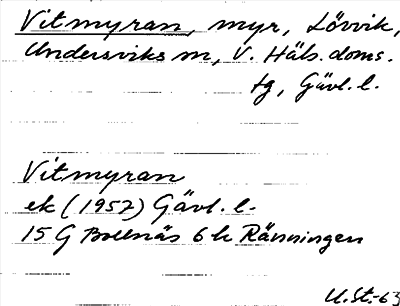 Vitmyran, myr, Lövvik,
Undersviks sn, V. Häls. doms.
tg, Gävl. l.
Vitmyran
ek (1957) Gävl. l.
15 G Bollnäs 6 h Ränningen
U.St.-63